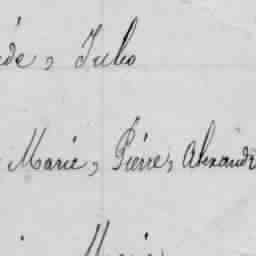 de, Jules
Marie, Pierre, Alexandr